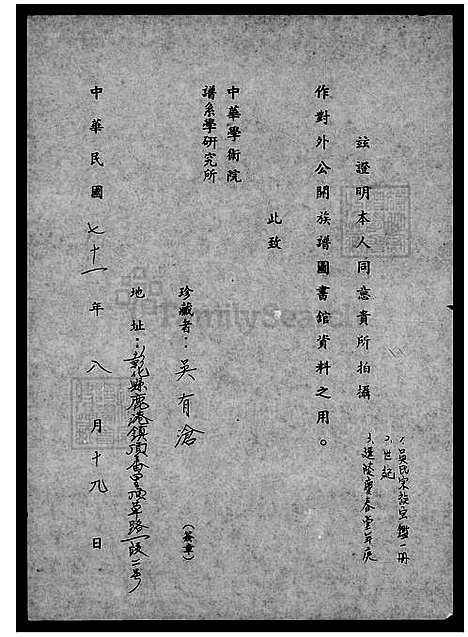 茲證明本人同意貴所拍攝
1.吳氏宗族寶鑑一冊
2.世紀
3.延陵慶春堂年庚
作對外公開族譜圖書館資料之用。
此致
中華學術院
譜系學研究所
珍藏者：吳有滄
(簽章)
地址：彰化縣鹿港鎮頂番里頂草路一段二號
中華民國七十一年八月十九日
FamilySearch